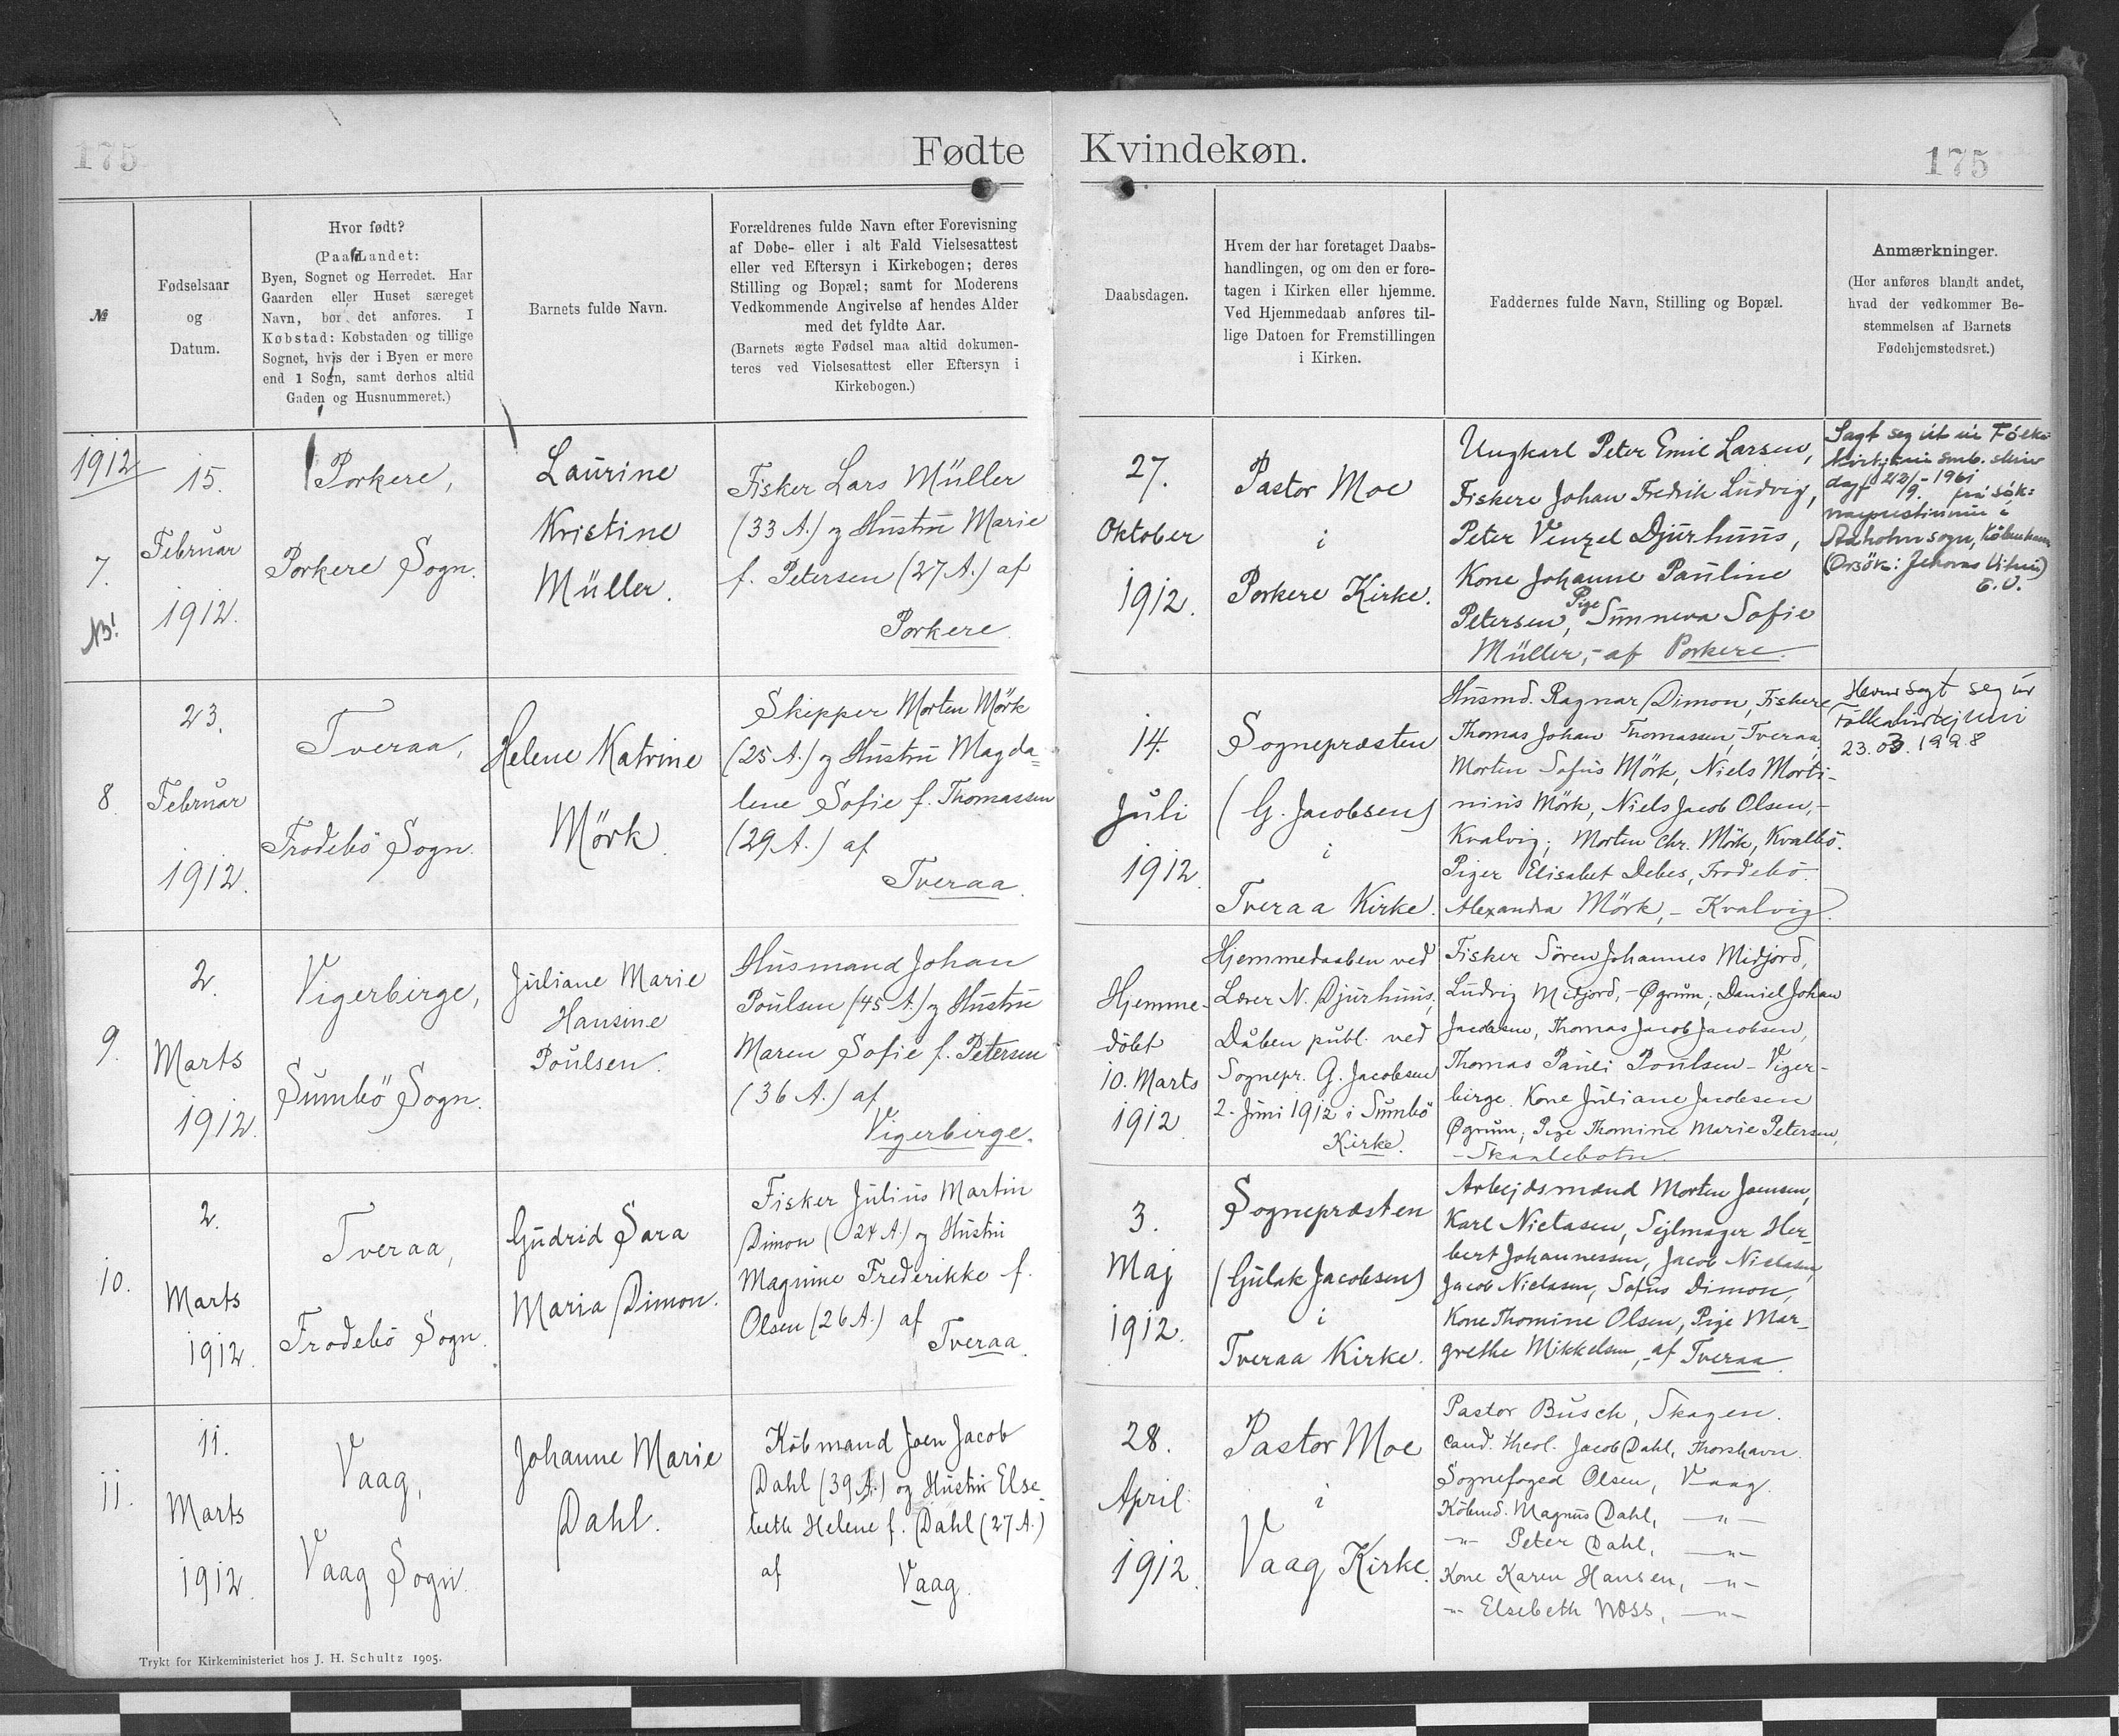 175
Fødte
Kvindekøn.
175
№
Fødselsaar
og
Datum.
Hvor født?
(Paa Landet:
Byen, Sognet og Herredet. Har
Gaarden eller Huset særeget
Navn, bør det anføres. I
Købstad: Købstaden og tillige
Sognet, hvis der i Byen er mere
end 1 Sogn, samt derhos altid
Gaden og Husnummeret.)
Barnets fulde Navn.
Forældrenes fulde Navn efter Forevisning
af Døbe- eller i alt Fald Vielsesattest
eller ved Eftersyn i Kirkebogen; deres
Stilling og Bopæl; samt for Moderens
Vedkommende Angivelse af hendes Alder
med det fyldte Aar.
(Barnets ægte Fødsel maa altid dokumen-
teres ved Vielsesattest eller Eftersyn i
Kirkebogen.)
Daabsdagen.
Hvem der har foretaget Daabs-
handlingen, og om den er fore-
tagen i Kirken eller hjemme.
Ved Hjemmedaab anføres til-
lige Datoen for Fremstillingen
i Kirken.
Faddernes fulde Navn, Stilling og Bopæl.
Anmærkninger.
(Her anføres blandt andet,
hvad der vedkommer Be-
stemmelsen af Barnets
Fødehjemstedsret.)
1912
7.
NB!
15.
Februar
1912.
Porkere,
Porkere Sogn.
Laurine
Kristine
Müller.
Fisker Lars Müller
(33 A.) og Hustru Marie
f. Petersen (27 A.) af
Porkere.
27.
Oktober
1912.
Pastor Moe
i
Porkere Kirke.
Ungkarl Peter Emil Larsen,
Fiskere Johan Fredrik Ludvig,
Peter Venzel Djurhuus,
Kone Johanne Pauline
Petersen, Pige Sunneva Sofie
Müller, - af Porkere.
Sagt seg út úr Fólka-
kirkjuni smb. skriv
dagf. 22/9 - 1961
frá sók-
narprestinum í
sogn, København
(Orsøk: Jehovas Vitni)
8.
23.
Februar
1912.
Tveraa,
Frodebö Sogn.
Helene Katrine
Mörk.
Skipper Morten Mörk
(25 A.) og Hustru Magda=
lene Sofie f. Thomassen
(29 A.) af
Tveraa.
14.
Juli
1912.
Sognepræsten
(G. Jacobsen)
i
Tveraa Kirke.
Husmd. Ragnar Dimon, Fiskere
Thomas Johan Thomassen, - Tveraa,
Morten Sofus Mörk, Niels Morti-
ninis Mörk, Niels Jacob Olsen, -
Kvalvig; Morten Chr. Mörk, Kvalbö.
Piger Elisabet Debes, Frodebö.
Alexandra Mörk, - Kvalvig.
Hevur sagt seg úr
Fólkakirkjuni
23.03.1998
9.
2.
Marts
1912.
Vigerbirge,
Sumbö Sogn.
Juliane Marie
Hansine
Poulsen.
Husmand Johan
Poulsen (45 A.) og Hustru
Maren Sofie f. Petersen
(36 A.) af
Vigerbirge.
Hjemme-
döbt
10. Marts
1912.
Hjemmedaaben ved
Lærer N. Djurhuus,
Daben publ. ved
Sognepr. G. Jacobsen
2. Juni 1912 i Sumbö
Kirke.
Fisker Sören Johannes Midjord,
Ludvig Midjord, - Øgrum; Daniel Johan
Jacobsen, Thomas Jacob Jacobsen,
Thomas Pauli Poulsen - Viger-
birge. Kone Juliane Jacobsen
Øgrum; Pige Thomine Marie Petersen,
- Skaalebotn.
10.
2.
Marts
1912.
Tveraa,
Frodebö Sogn.
Gudrid Sara
Maria Dimon.
Fisker Julius Martin
Dimon (24 A.) og Hustru
Magnine Frederikke f.
Olsen (26 A.) af
Tveraa.
3.
Maj
1912.
Sognepræsten
(Gulak Jacobsen)
i
Tveraa Kirke.
Arbejdsmænd Morten Joensen,
Karl Niclasen, Sejlmager Her-
bert Johannessen, Jacob Niclasen,
Jacob Niclasen, Sofus Dimon,
Kone Thomine Olsen, Pige Mar-
grethe Mikkelsen, - af Tveraa.
11.
11.
Marts
1912.
Vaag,
Vaag Sogn.
Johanne Marie
Dahl.
Købmand Joen Jacob
Dahl (39 A.) og Hustru Else-
beth Helene f. Dahl (27 A.)
af
Vaag.
28.
April
1912.
Pastor Moe
i
Vaag Kirke.
Pastor Busch, Skagen.
Cand. theol. Jacob Dahl, Thorshavn.
Sognefoged Olsen, Vaag.
Købmd. Magnus Dahl, —"—
—"— Peter Dahl, —"—
Kone Karen Hansen, —"—
—"— Elsebeth Næss, —"—
Trykt for Kirkeministeriet hos J. H. Schultz 1905.